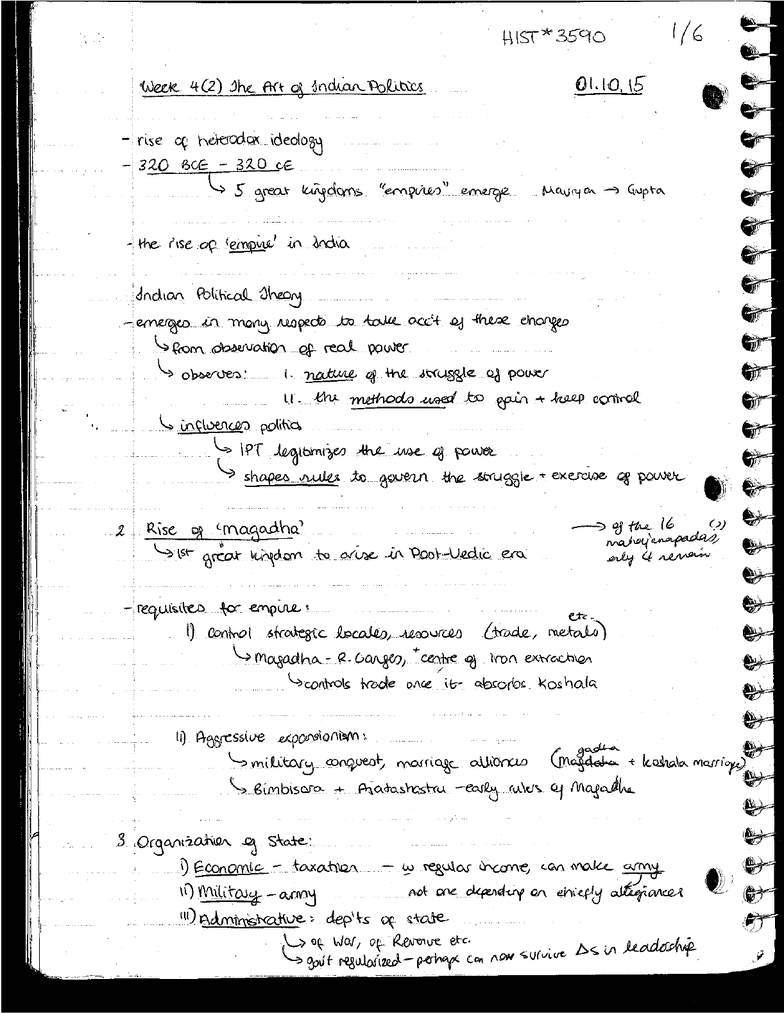 HIST*3590 1/6
Week 4(2) The Art of Indian Politics 01.10.15
- rise of heterodox ideology
- 320 BCE - 320 CE
↳ 5 great kingdoms "empires" emerge Mauryan → Gupta
- the rise of 'empire' in India
Indian Political Theory
- emerges in many respects to take acc't of these changes
↳ from observation of real power
↳ observes: i. nature of the struggle of power
ii. the methods used to gain + keep control
↳ influences politics
↳ IPT legitimizes the use of power
↳ shapes rules to govern the struggle + exercise of power
2 Rise of 'magadha' → of the 16 (?)
mahajanapadas,
only 4 remain
↳ 1st great kingdom to arise in Post-Vedic era
- requisites for empire:
i) control strategic locales, resources (trade, metals) etc.
↳ Magadha - R. Ganges, + centre of iron extraction
↳ controls trade once it absorbs Koshala
ii) Aggressive expansionism:
↳ military conquest, marriage alliances (magadha + koshala marriage)
↳ Bimbisara + Ajatashatru - early rulers of Magadha
3 Organization of State:
i) Economic - taxation - w regular income, can make army
ii) Military - army not one depending on chiefly allegiances
iii) Administrative: dep'ts of state
↳ of War, of Revenue etc.
↳ gov't regularized - perhaps can now survive Δs in leadership